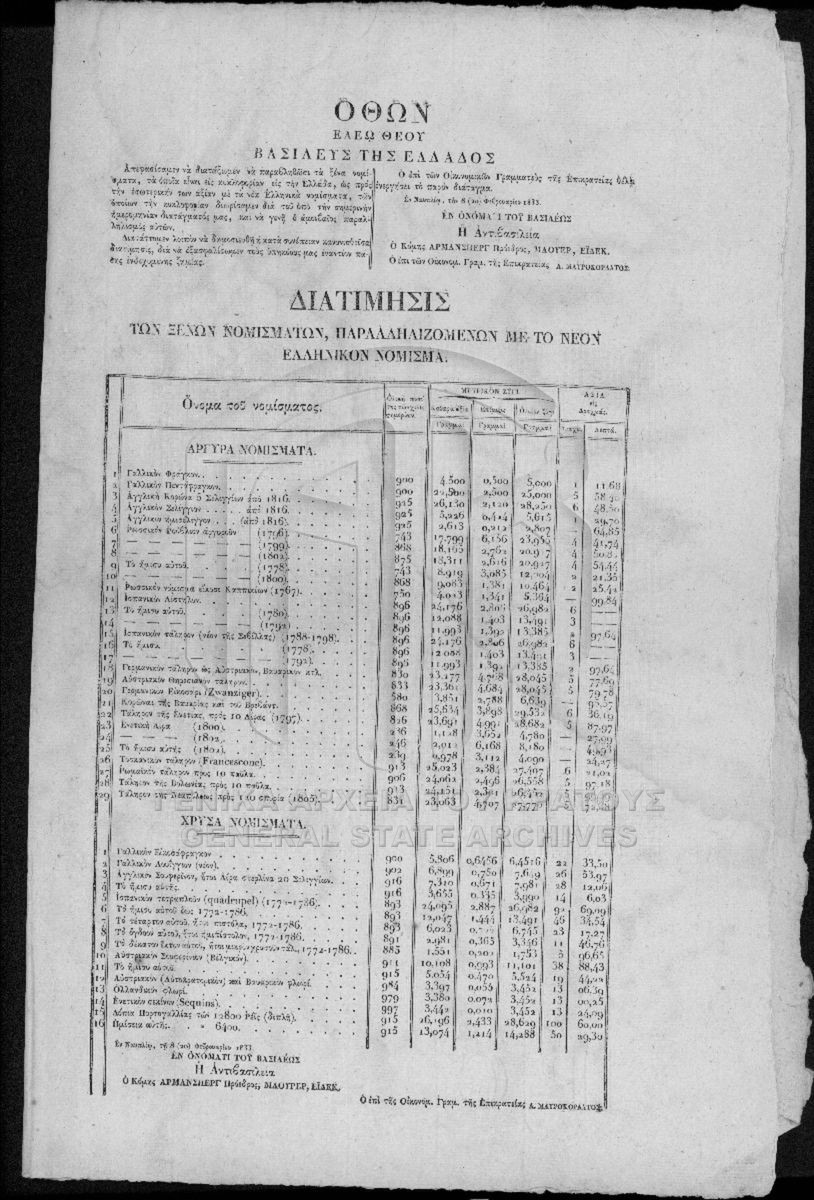 ΟΘΩΝ
ΕΛΕΩ ΘΕΟΥ
ΒΑΣΙΛΕΥΣ ΤΗΣ ΕΛΛΑΔΟΣ
Απεφασίσαμεν να διατάξωμεν να παραβληθώσι τα ξένα νομί-
σματα, τα οποία είναι εις κυκλοφορίαν εις την Ελλάδα, ως προς
την εσωτερικήν των αξίαν με τα νέα Ελληνικά νομίσματα, των
οποίων την κυκλοφορίαν διωρίσαμεν διά του υπό την σημερινήν
ημερομηνίαν διατάγματός μας, και να γενή ο αμοιβαίος παραλ-
ληλισμός αυτών.
Διατάττομεν λοιπόν να δημοσιευθή η κατά συνέπειαν κανονισθείσα
διατίμησις, διά να εξασφαλίσωμεν τους υπηκόους μας εναντίον πά-
σης ενδεχομένης ζημίας.
Ο επί των Οικονομικών Γραμματεύς της Επικρατείας θέλει
ενεργήσει το παρόν διάταγμα.
Εν Ναυπλίω, την 8 (20) Φεβρουαρίου 1833.
ΕΝ ΟΝΟΜΑΤΙ ΤΟΥ ΒΑΣΙΛΕΩΣ
Η Αντιβασιλεία
Ο Κόμης ΑΡΜΑΝΣΠΕΡΓ Πρόεδρος, ΜΑΟΥΡΕΡ, ΕΪΔΕΚ.
Ο επί των Οικονομ. Γραμ. της Επικρατείας Α. ΜΑΥΡΟΚΟΡΔΑΤΟΣ.
ΔΙΑΤΙΜΗΣΙΣ
ΤΩΝ ΞΕΝΩΝ ΝΟΜΙΣΜΑΤΩΝ, ΠΑΡΑΛΛΗΛΙΖΟΜΕΝΩΝ ΜΕ ΤΟ ΝΕΟΝ
ΕΛΛΗΝΙΚΟΝ ΝΟΜΙΣΜΑ.
Όνομα του νομίσματος.
ΑΞΙΑ
εις
Δραχμάς.
Γραμμαί Γραμμαί Γραμμαί Λεπτά.
ΑΡΓΥΡΑ ΝΟΜΙΣΜΑΤΑ.
1 Γαλλικόν Φράγκον. 900 4,500 0,500 5,000 1 11,68
2 Γαλλικόν Πεντάφραγκον. 900 22,500 2,500 25,000 5 58,40
3 Αγγλική Κορώνα 5 Σελινίων από 1816. 925 26,130 2,120 28,250 6 48,50
4 Αγγλικόν Σελίνιον από 1816. 925 5,226 0,424 5,615 1 29,70
5 Αγγλικόν ημισελίνιον (από 1816). 925 2,613 0,212 2,807 64,85
6 Ρωσσικόν Ρούβλιον αργυρούν (1796) 743 17,799 6,156 23,959 4 41,74
7 — (1799). 868 18,165 2,762 20,917 4
8 — (1802). 875 18,311 2,616 20,927 4 54,44
9 Το ήμισυ αυτού. (1778). 743 8,919 3,085 2 21,35
10 — (1800). 868 9,083 1,381 10,464 2 25,42
11 Ρωσσικόν νόμισμα είκοσι Καπικίων (1767). 750 4,023 1,341 5,364 — 99,84
12 Ισπανικόν Δίστηλον. 896 24,176 2,806 26,982 6
13 Το ήμισυ αυτού. (1780). 896 12,088 1,403 13,491 3
14 — (1792) 896 11,993 1,392 13,385 97,64
15 Ισπανικόν τάληρον (νέον της Σεβίλλας) (1788-1798). 896 24,176 2,806 26,982 6
16 Το ήμισυ (1778). 896 12,088 1,403 13,491 3
17 — (1792). 896 11,993 1,392 13,385 2 97,64
18 Γερμανικόν τάληρον ως Αυστριακόν, Βαυαρικόν κτλ. 830 23,277 4,768 28,045 5 77,69
19 Αυστριακόν Θηρεσιανόν τάληρον. 833 23,361 4,684 28,045 5 79,78
20 Γερμανικόν Εικοσάρι (Zwanziger). 580 3,851 2,788 6,639
21 Κορώνα της Βαυαρίας και του Βραβάντ. 868 25,634 3,898 29,532 6 36,19
22 Τάληρον της Ενετίας, προς 10 Λίρας (1797). 826 23,691 4,991 28,682 5 87,97
23 Ενετική Λίρα (1800). 236 1,128 3,652 4,780 — 27,99
24 — (1802). 246 2,012 6,168 8,180
25 Το ήμισυ αυτής (1802). 239 0,978 3,112 4,090 24,27
26 Τοσκανικόν τάληρον (Francescone). 913 25,023 2,384 27,407 6 21,02
27 Ρωμαϊκόν τάληρον προς 10 παύλα. 906 24,062 2,496 26,558 5 97,18
28 Τάληρον της Βολωνίας προς 10 παύλα. 913 24,151
29 Τάληρον της Νεαπόλεως προς 120 (1805). 831 23,063 4,707 27,770 5
ΓΕΝΙΚΑ ΑΡΧΕΙΑ ΤΟΥ ΚΡΑΤΟΥΣ
GENERAL STATE ARCHIVES
ΧΡΥΣΑ ΝΟΜΙΣΜΑΤΑ.
1 Γαλλικόν Εικοσάφραγκον 900 5,806 0,6456 6,4516 22 33,50
2 Γαλλικόν Λουίγιον (νέον). 902 6,899 0,750 7,649 26 53,97
3 Αγγλικόν Σουφερίνον, ήτοι Λίρα στερλίνα 20 Σελινίων. 916 7,310 0,671 7,981 28 12,06
4 Το ήμισυ αυτής. 916 3,655 0,335 3,990 14 6,03
5 Ισπανικόν τετραπλούν (quadrupel) (1772-1786). 893 24,095 2,887 26,982 92 69,09
6 Το ήμισυ αυτού έως 1772-1786. 893 12,047 1,444 13,491 46 34,54
7 Το τέταρτον αυτού, ήτοι πιστόλα, 1772-1786. 893 6,023 6,745 23 17,27
8 Το όγδοον αυτού, ήτοι ημιπίστολον, 1772-1786. 891 2,981 0,365 3,346 11 46,76
9 Το δέκατον έκτον αυτού, ήτοι μικρόν χρυσούν τάλ., 1772-1786. 885 1,551 0,202 1,753 5 96,65
10 Αυστριακόν Σουφερίνιον (Βελγικόν). 911 10,108 0,993 11,101 38 88,43
11 Το ήμισυ αυτού. 915 5,054 0,470 5,524 19 44,22
12 Αυστριακόν (Αυτοκρατορικόν) και Βαυαρικόν φλωρί. 984 3,397 0,055 3,452 13 06,39
13 Ολλανδικόν φλωρί. 979 3,380 0,072 3,452 13 00,25
14 Ενετικόν σικίνιον (Sequins). 997 3,442 0,010 3,452 13 24,09
15 Δόπια Πορτογαλλίας των 12800 Ρέις (διπλή). 915 26,196 2,433 28,629 100 60,00
16 Ημίσεια αυτής. » 6400. 915 13,074 1,214 14,288 50 29,30
Εν Ναυπλίω, τη 8 (20) Φεβρουαρίου 1833.
ΕΝ ΟΝΟΜΑΤΙ ΤΟΥ ΒΑΣΙΛΕΩΣ
Η Αντιβασιλεία
Ο Κόμης ΑΡΜΑΝΣΠΕΡΓ Πρόεδρος, ΜΑΟΥΡΕΡ, ΕΪΔΕΚ.
Ο επί της Οικονομ. Γραμ. της Επικρατείας Α. ΜΑΥΡΟΚΟΡΔΑΤΟΣ.